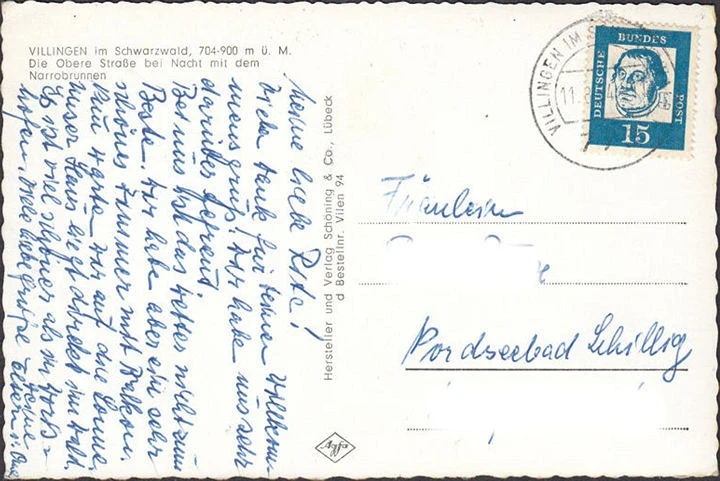 VILLINGEN im Schwarzwald, 704-900 m ü. M.
Die Obere Straße bei Nacht mit dem
Narrobrunnen
Meine liebe Rita!
Vielen Dank für Deinen Willkom-
mensgruß! Wir habe uns sehr
darüber gefreut
Bei uns ist das Wetter nicht zum
Beste. Wir habe aber ein sehr
schönes Zimmer mit Balkon.
Nun warte wir auf die Sonne.
Unser Haus liegt direkt im Wald.
Es ist viel schöner als in
Viele liebe Grüße Deine
Hersteller und Verlag Schöning & Co., Lübeck
d Bestellnr. Vilen 94
VILLINGEN IM S
11.
DEUTSCHE BUNDESPOST
15
Fräulein
Nordseebad Schillig
Agfa